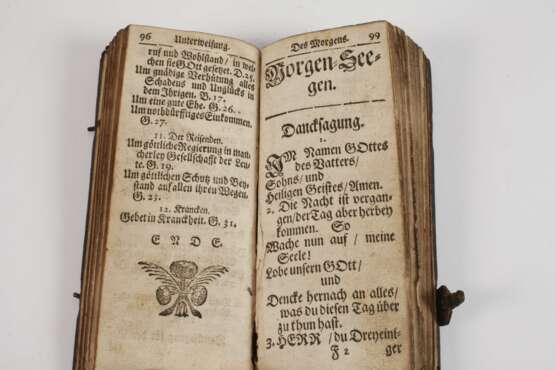 96 Unterweisung.
ruf und Wohlstand / in wel-
chen sie GOtt gesetzet. D. 25.
Um gnädige Verhütung alles
Schadens und Unglücks in
dem Ihrigen. B. 17.
Um eine gute Ehe. G. 26.
Um nothdürfftiges Einkommen.
G. 27.
11. Der Reisenden.
Um göttliche Regierung in man-
cherley Gesellschafft der Leu-
te. G. 19.
Um göttlichen Schutz und Bey-
stand auf allen ihren Wegen.
G. 23.
12. Krancken.
Gebet in Kranckheit. G. 31.
E N D E.
Des Morgens. 99
Morgen-See-
gen.
Dancksagung.
1.
IM Namen GOttes
des Vatters /
Sohns / und
Heiligen Geistes / Amen.
2. Die Nacht ist vergan-
gen / der Tag aber herbey
kommen. So
Wache nun auf / meine
Seele!
Lobe unsern GOtt /
und
Dencke hernach an alles /
was du diesen Tag über
zu thun hast.
3. HERR / du Dreyeini-
F 2 ger